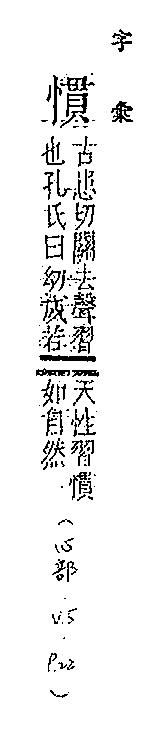 字彙
慣
古患切關去聲習
也孔氏曰幼成若
天性習慣
如自然
(心部.V.5.P.22)